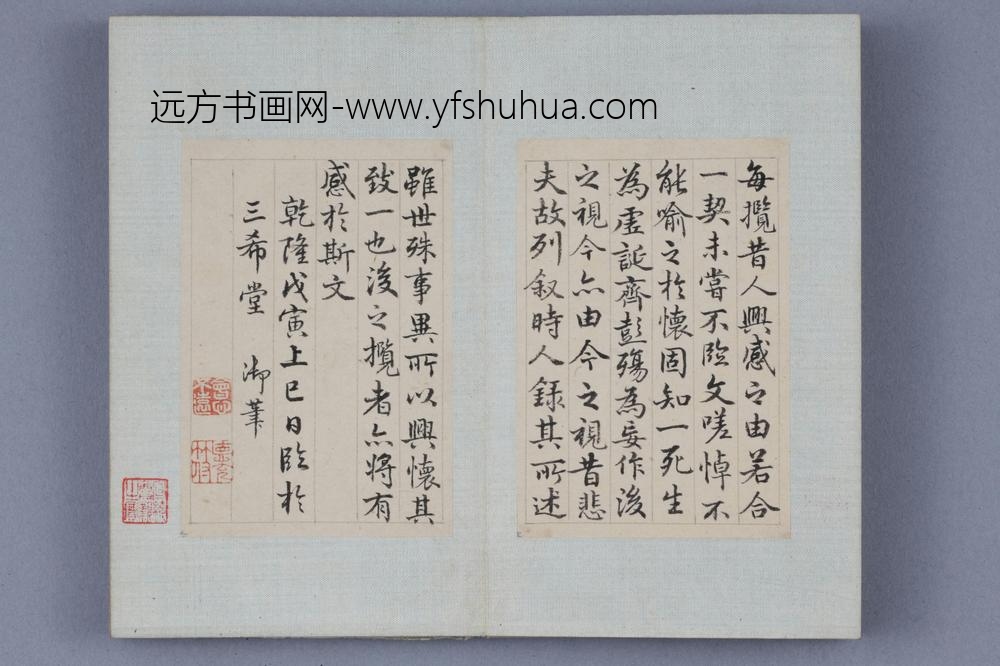 远方书画网-www.yfshuhua.com
每攬昔人興感之由若合
一契未嘗不臨文嗟悼不
能喻之於懷固知一死生
為虛誕齊彭殤為妄作後
之視今亦由今之視昔悲
夫故列叙時人錄其所述
雖世殊事異所以興懷其
致一也後之攬者亦將有
感於斯文
乾隆戊寅上巳日臨於
三希堂 御筆